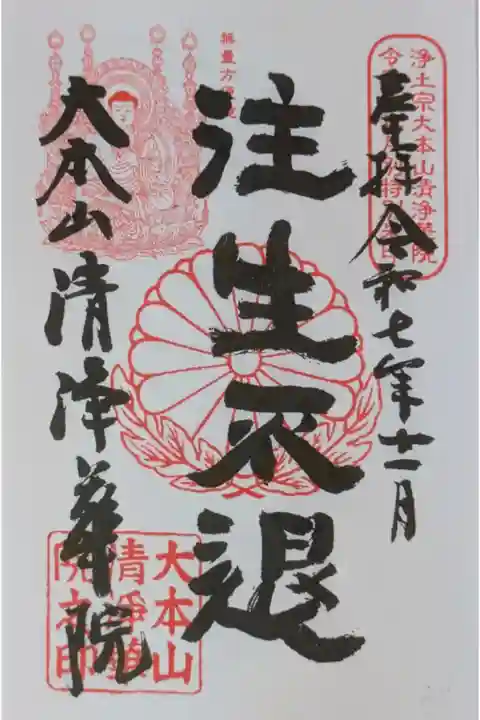 浄土宗大本山清浄華院
奉拝 令和七年十一月
往生不退
無量方便
大本山 清浄華院
大本山
清浄華
院之印